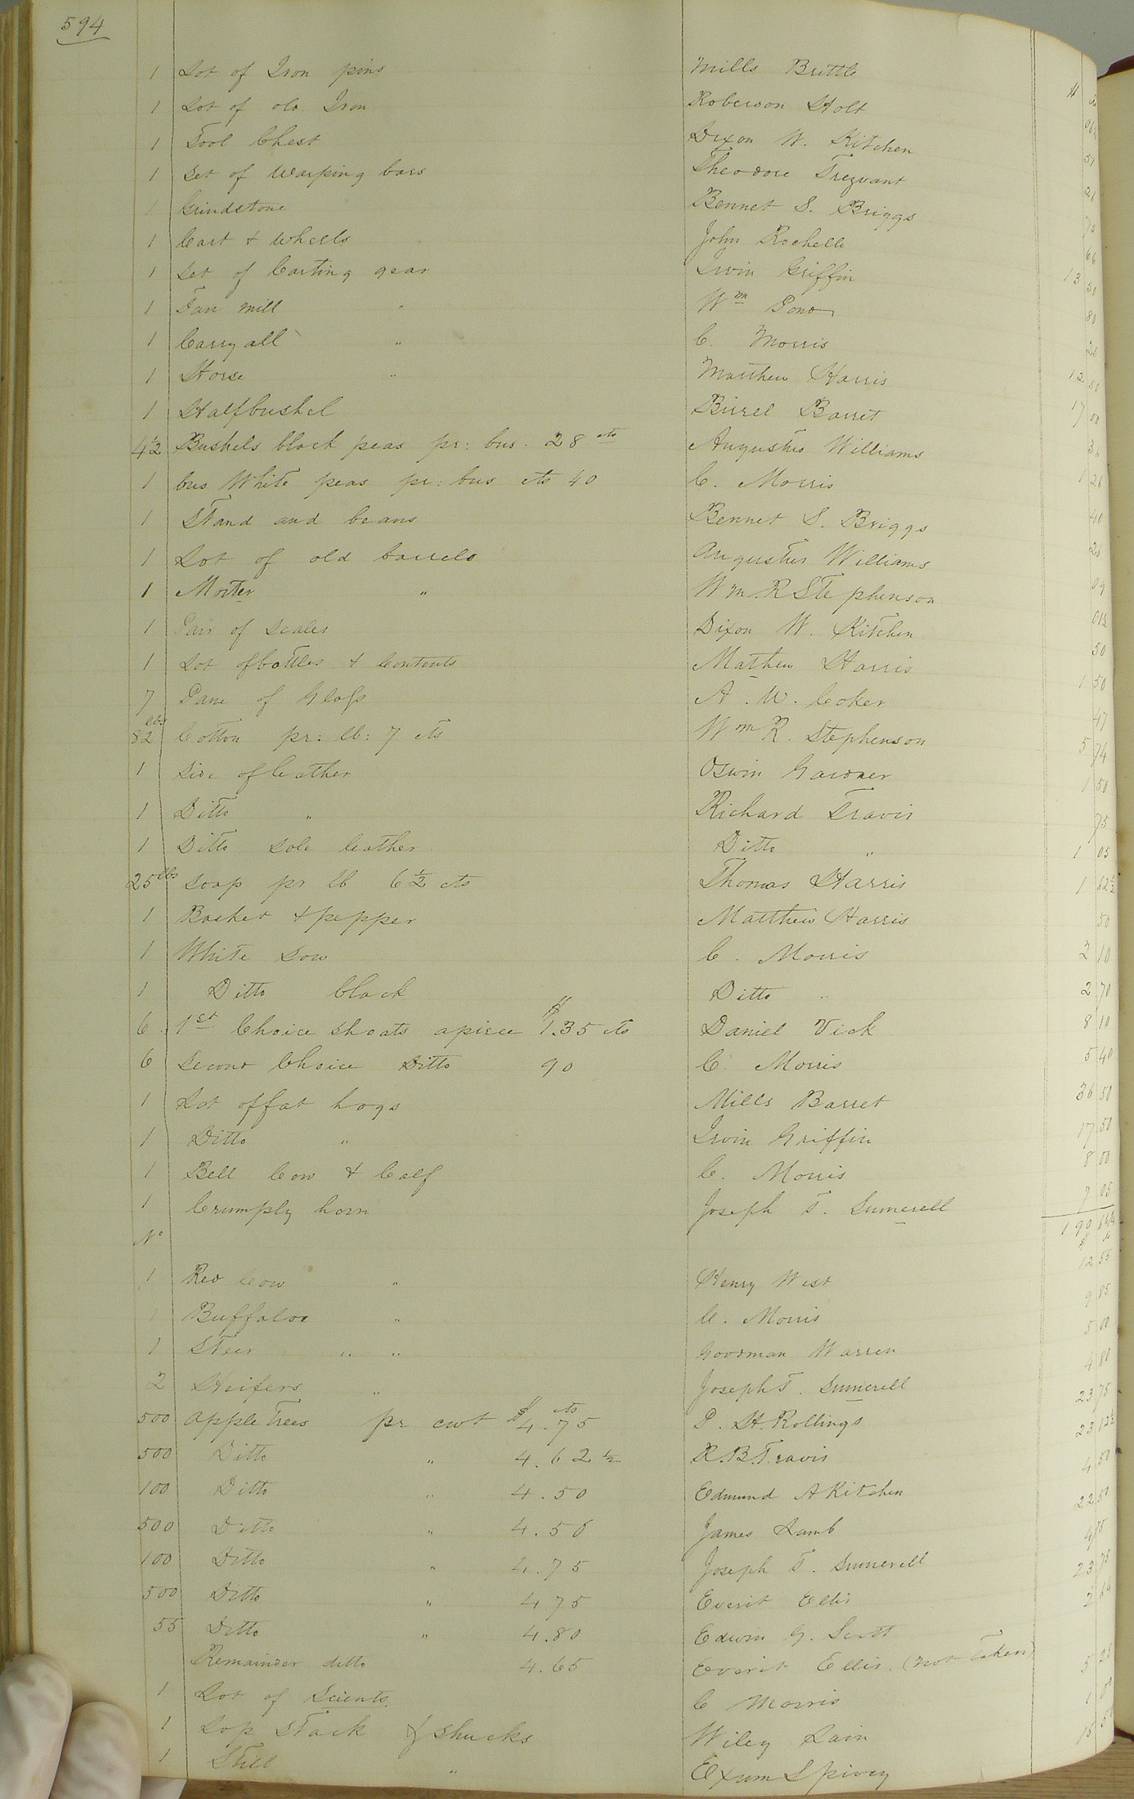 594
1 Lot of Iron pins Mills Brittle
1 Lot of old Iron Roberson Holt
1 Tool Chest Dixon W. Kitchen
1 Set of Warping bars Theodore Trezvant
1 Grindstone Bennet S. Briggs
1 Cart & Wheels John Rochelle
1 Set of Carting gear Irvin Griffin 13 50
1 Fan mill " Wm Pond 80
1 Carry all " C. Morris
1 Horse " Matthew Harris 12 50
1 Halfbushel Birrel Barret 17 00
4½ Bushels black peas pr: bus. 28 cts Augustus Williams
1 bus White peas pr: bus cts 40 C. Morris 1 26
1 Stand and beans Bennet S. Briggs 40
1 Lot of old barrels Augustus Williams 20
1 Morter " Wm R Stephenson
1 Pair of Scales Dixon W. Kitchen
1 Lot of bottles & Contents Mathew Harris 50
7 Pane of Glass A. W. Coker 1 50
82 lbs Cotton pr: lb: 7 cts Wm R. Stephenson 5 74
1 Side of leather Oswin Gardner 1 50
1 Ditto " Richard Travis 75
1 Ditto Sole leather Ditto " 1 05
25 lbs Soap pr lb 6½ cts Thomas Harris 1 62½
1 Basket & pepper Matthew Harris 50
1 White Sow C. Morris 2 10
1 Ditto black Ditto " 2 70
6 1st Choice Shoats apiece $1.35 cts Daniel Vick 8 10
6 Second Choice Ditto 90 C. Morris 5 40
1 Lot of fat hogs Mills Barret 36 50
1 Ditto " Irvin Griffin 17 50
1 Bell Cow & Calf C. Morris 8 00
1 Crumply horn Joseph T. Sumerell 7 05
No
1 Red Cow " Henry West 12 55
1 Buffaloe " C. Morris 9 85
1 Steer " " Goodman Warren 5 00
2 Heifers " Joseph T. Sumerell 4 80
500 apple Trees pr cwt $4.75 cts P. H. Rollings 23 75
500 Ditto " 4.62½ R. B. Travis 23 12½
100 Ditto " 4.50 Edmund A Kitchen 4 50
500 Ditto " 4.50 James Lamb 22 50
100 Ditto " 4.75 Joseph T. Sumerell 4 75
500 Ditto " 4 75 Everit Ellis 23 75
55 Ditto " 4.80 Edwin G. Scott 2 64
Remainder ditto 4.65 Everit Ellis (not Taken)
1 Lot of Scients C Morris
1 Top Stack of Shucks Wiley Lain
1 Still " Exum Spivey